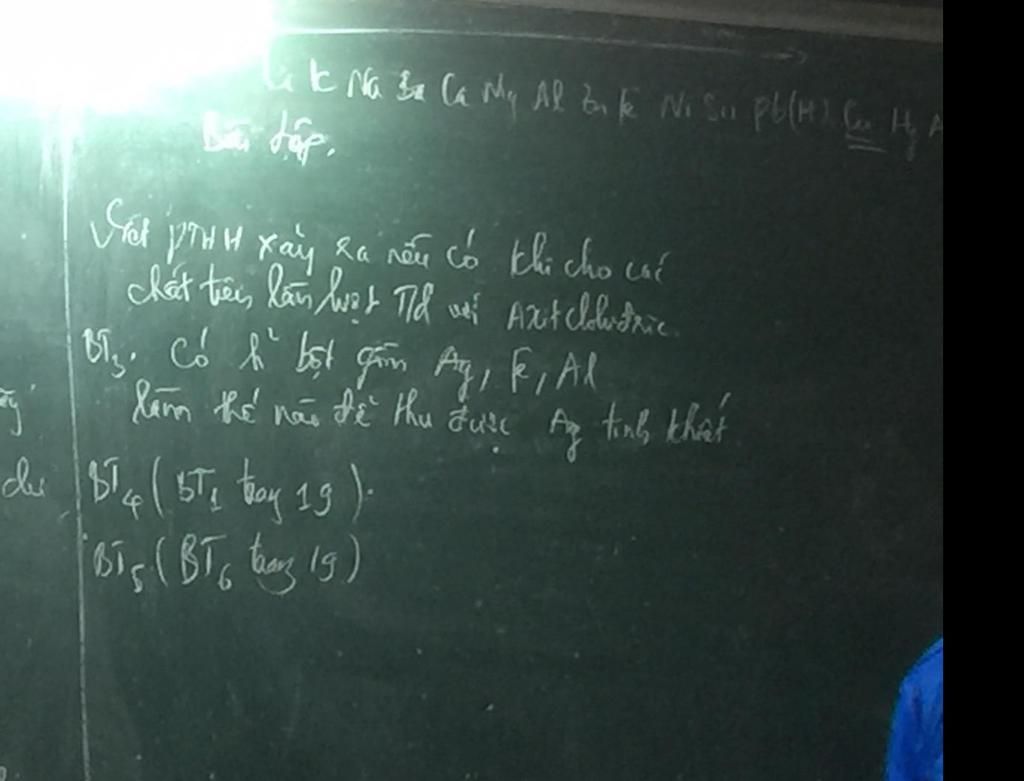 Li K Na Ba Ca Mg Al Zn Fe Ni Sn Pb(H) Cu Hg A
Bài tập.
Viết PTHH xảy ra nếu có khi cho các
chất trên lần lượt Td với Axit clohiđric
BT3. Có h² bột gồm Ag, Fe, Al
làm thế nào để thu được Ag tinh khiết
BT4 (BT1 trang 19).
BT5 (BT6 trang 19)